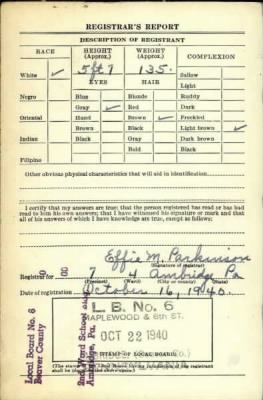 REGISTRAR'S REPORT
DESCRIPTION OF REGISTRANT
RACE HEIGHT (Approx.) WEIGHT (Approx.) COMPLEXION
White ✓ 5 ft 7 135. Sallow
EYES HAIR Light
Negro Blue Blonde Ruddy
Gray ✓ Red Dark
Oriental Hazel Brown ✓ Freckled
Brown Black Light brown ✓
Indian Black Gray Dark brown
Bald Black
Filipino
Other obvious physical characteristics that will aid in identification
I certify that my answers are true; that the person registered has read or has had
read to him his own answers; that I have witnessed his signature or mark and that
all of his answers of which I have knowledge are true, except as follows:
Effie M. Parkinson
(Signature of registrar)
Registrar for 7 4 Ambridge Pa
(Precinct) (Ward) (City or county) (State)
Date of registration October 16, 1940.
L. B. No. 6
MAPLEWOOD & 6th ST.
OCT 22 1940
(STAMP OF LOCAL BOARD)
(The stamp of the Local Board having jurisdiction of the registrant
shall be placed in the above space)
Local Board No. 6
Beaver County
2nd Ward School
Ambridge, Pa.